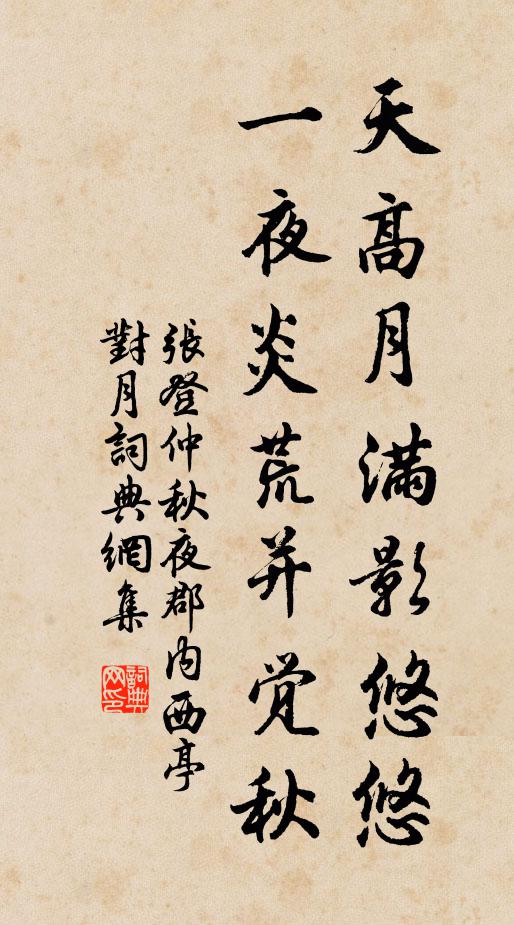 天高月滿影悠悠
一夜炎荒并觉秋
張登仲秋夜郡内西亭
對月詞典網集
詞典网印